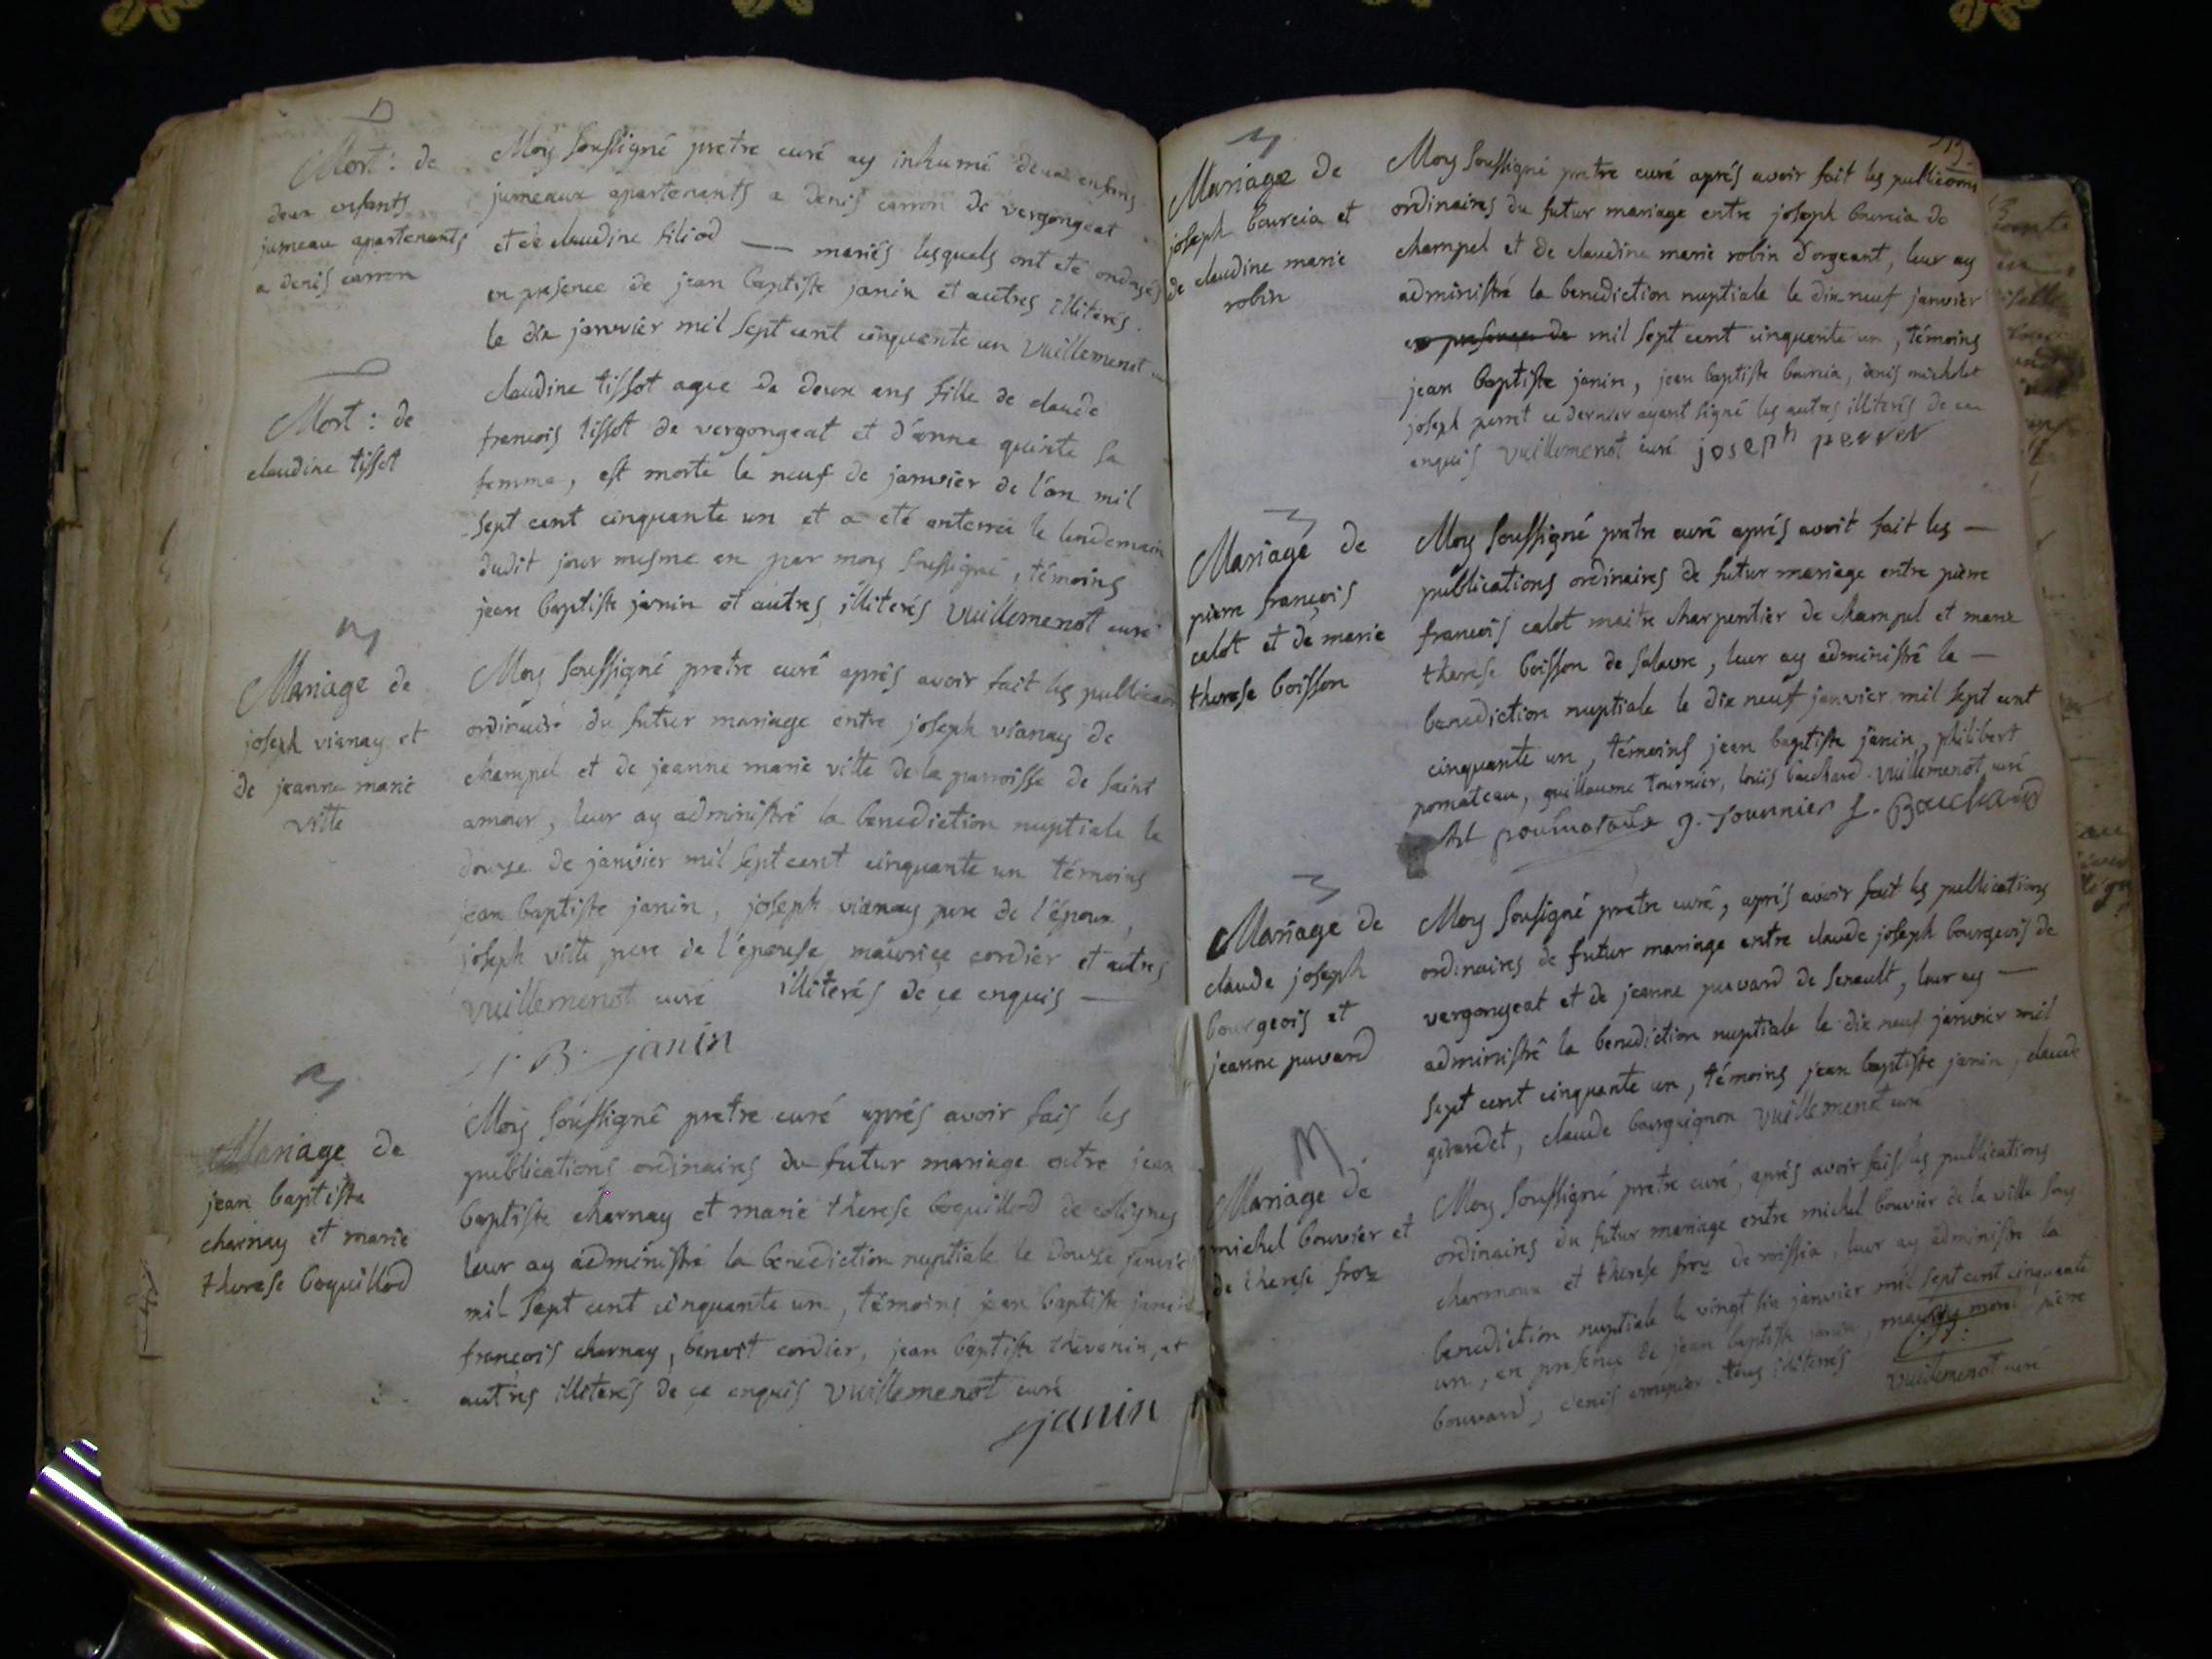 D
Mort : de
deux enfants
jumeau apartenants
a denis carron
Moy soussigné pretre curé ay inhumé deux enfans
jumeaux apartenants a denis carron de vergongeat
et de claudine filiod — mariés lesquels ont eté ondoyés
en presence de jean baptiste janin et autres illiterés
le dix janvier mil sept cent cinquante un vuillemenot
D
Mort : de
claudine tissot
claudine tissot agee de deux ans fille de claude
francois tissot de vergongeat et d'anne quinte sa
femme, est morte le neuf de janvier de l'an mil
sept cent cinquante un et a eté enterrée le lendemain
dudit jour mesme an par moy soussigné, témoins
jean baptiste janin et autres illiterés vuillemenot curé
M
Mariage de
joseph vianay et
de jeanne marie
ville
Moy soussigné pretre curé aprés avoir fait les publicaons
ordinaire du futur mariage entre joseph vianay de
champel et de jeanne marie ville de la parroisse de saint
amour, leur ay administré la benediction nuptiale le
douze de janvier mil sept cent cinquante un témoins
jean baptiste janin, joseph vianay pere de l'époux,
joseph ville pere de l'épouse maurice cordier et autres
vuillemenot curé illiterés de ce enquis —
J. B. janin
M
Mariage de
jean baptiste
charnay et marie
therese boquillod
Moy soussigné pretre curé aprés avoir fais les
publications ordinaires du futur mariage entre jean
baptiste charnay et marie therese boquillod de coligney
leur ay administré la benediction nuptiale le douze janvier
mil sept cent cinquante un, témoins jean baptiste janin
françois charnay, benoit cordier, jean baptiste thevenin, et
autres illiterés de ce enquis vuillemenot curé
janin
M
Mariage de
joseph bourcia et
de claudine marie
robin
Moy soussigné pretre curé aprés avoir fait les publicaons
ordinaires du futur mariage entre joseph bourcia de
champel et de claudine marie robin d'orgeant, leur ay
administré la benediction nuptiale le dix neuf janvier
en presence de mil sept cent cinquante un, témoins
jean baptiste janin, jean baptiste bourcia, denis michelet
joseph perret ce dernier ayant signé les autres illiterés de ce
enquis vuillemenot curé joseph perret
M
Mariage de
pierre françois
calot et de marie
therese boisson
Moy soussigné pretre curé aprés avoit fait les —
publications ordinaires de futur mariage entre pierre
francois calot maitre charpentier de champel et marie
therese boisson de salavre, leur ay administré la —
benediction nuptiale le dix neuf janvier mil sept cent
cinquante un, témoins jean baptiste janin, philibert
pomateau, guillaume tournier, louis bouchard vuillemenot curé
g. tournier L. Bouchard
M
Mariage de
claude joseph
bourgeois et
jeanne puvard
Moy sousigné pretre curé, aprés avoir fait les publications
ordinaires de futur mariage entre claude joseph bourgeois de
vergongeat et de jeanne puvard de senault, leur ay —
administré la benediction nuptiale le dix neuf janvier mil
sept cent cinquante un, témoins jean baptiste janin, claude
girardet, claude bourguignon vuillemenot curé
M
Mariage de
michel bouvier et
de therese froz
Moy soussigné pretre curé, aprés avoir fais les publications
ordinaires du futur mariage entre michel bouvier de la ville sous
charmoux et therese froz de nissia, leur ay administre la
benediction nuptiale le vingt six janvier mil sept cent cinquante
un, en presence de jean baptiste janin, morel, pierre
bouvard, denis tous illiterés vuillemenot curé